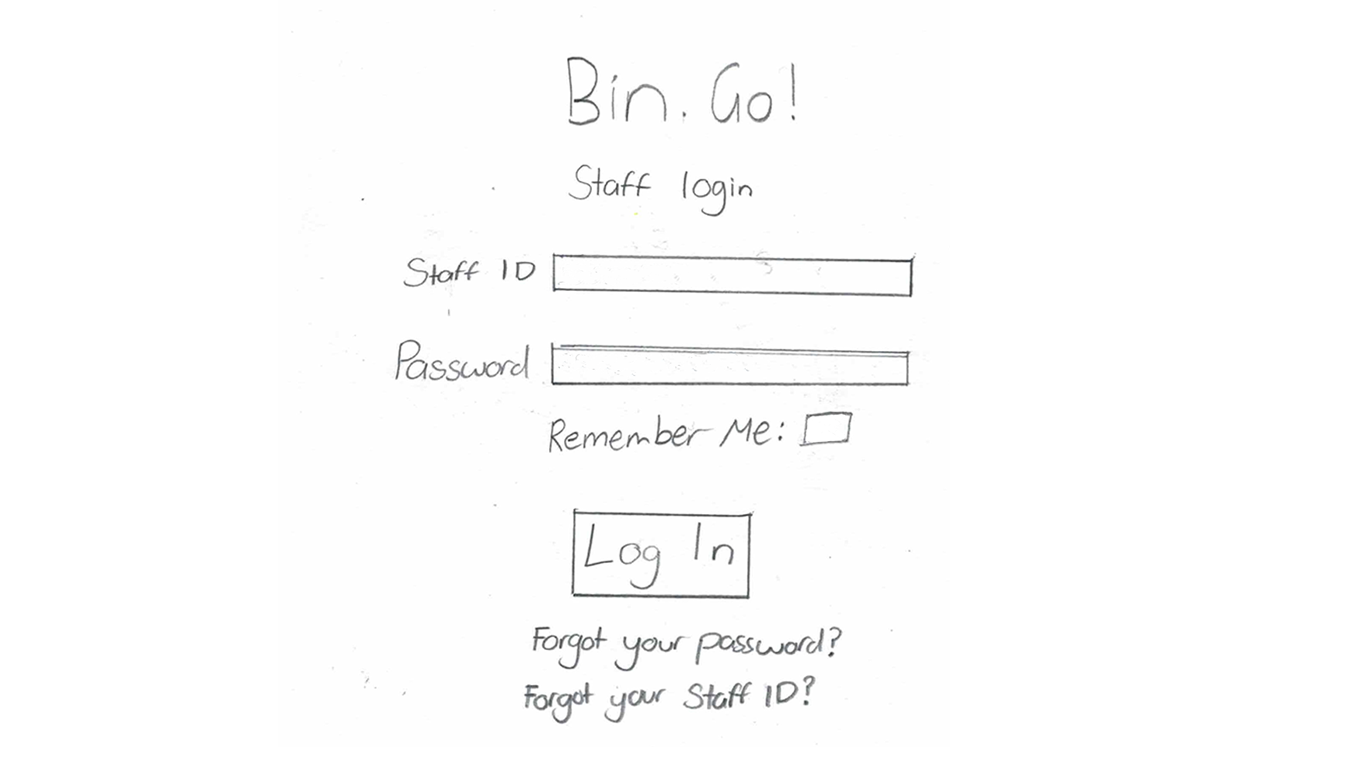 Bin. Go!
Staff login
Staff ID
Password
Remember Me:
Log In
Forgot your password?
Forgot your Staff ID?